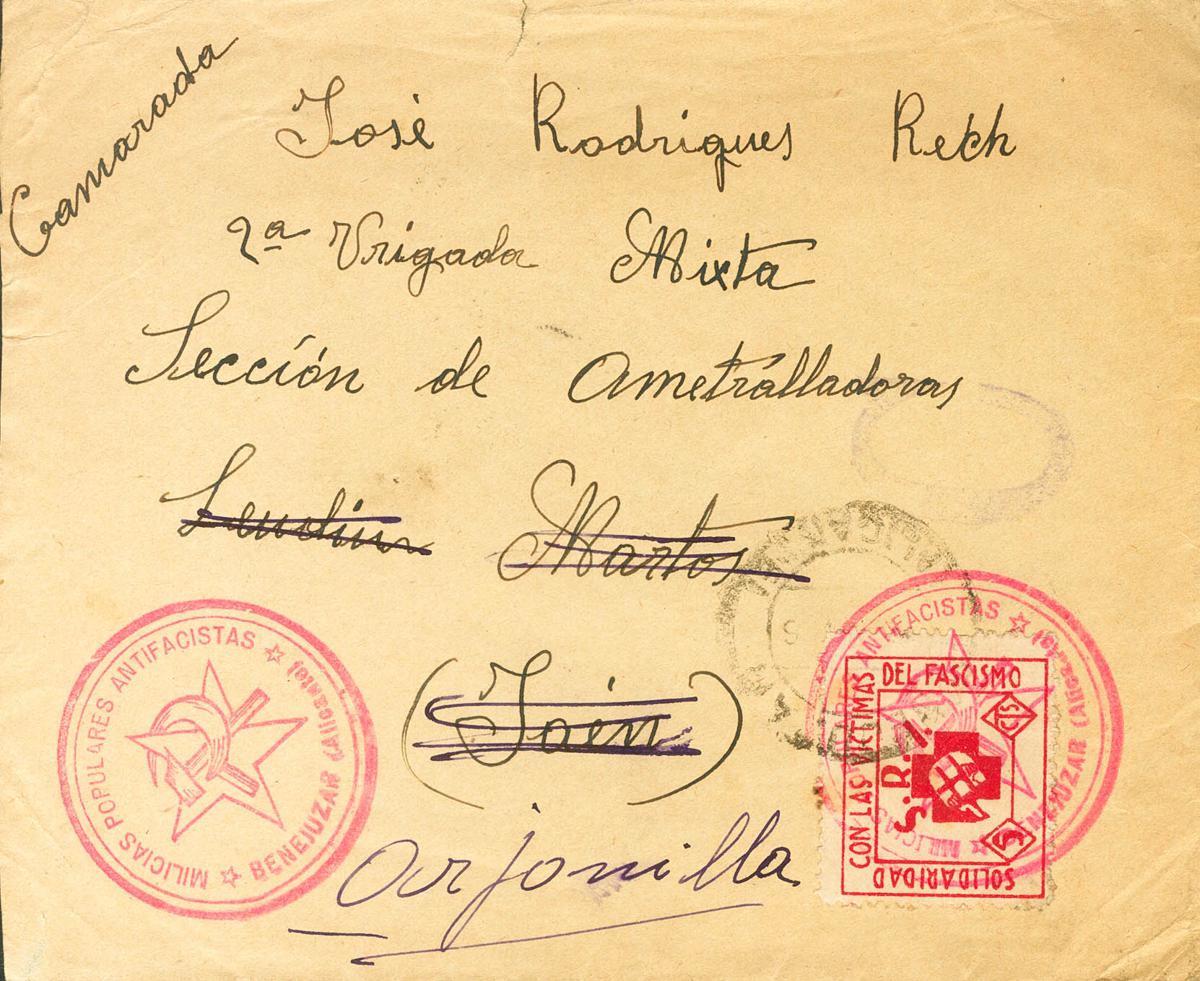 Camarada
José Rodrigues Rech
2ª Vrigada Mixta
Sección de Ametralladoras
Martos
(Jaén)
Arjonilla
MILICIAS POPULARES ANTIFACISTAS ☆ (Alicante)
☆ BENEJUZAR
ANTIFACISTAS ☆ (Alicante)
MILICIAS ☆ BENEJUZAR
SOLIDARIDAD
CON LAS VICTIMAS
DEL FASCISMO
S. R. I.
5
CTS